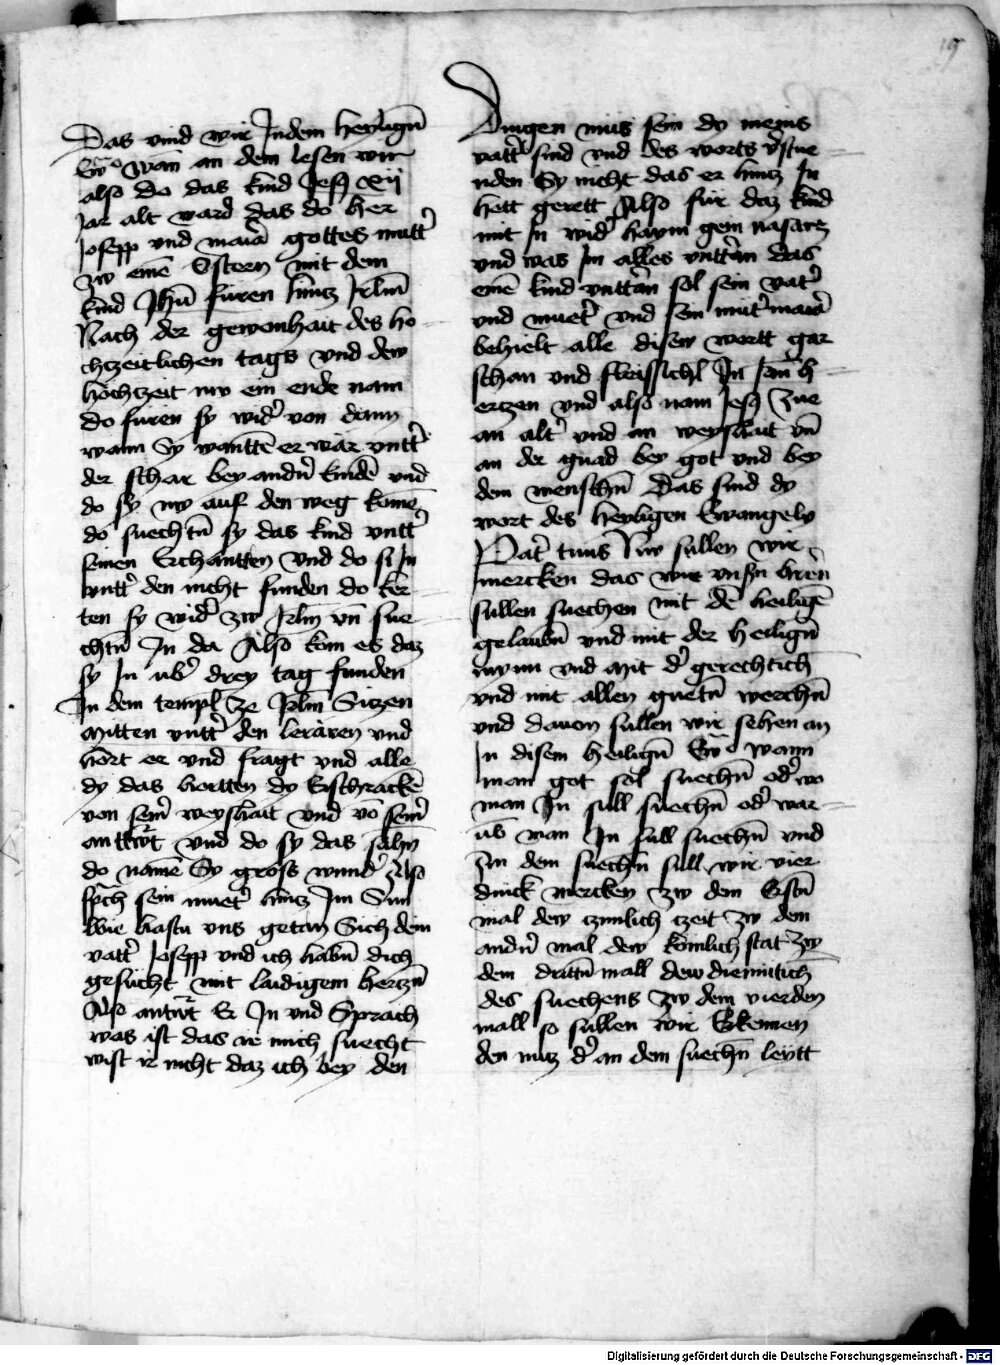 19
Das vind wir Jndem heyligñ
Ew̃o wan̄ an dem lesen wir
also do das kind Jesꝫ xij
Jar alt ward das do her
Josepp vnd maria gottes mutt̛
zw eine͂ Ostern mit dem
kind Jhũ furen hincz Jrlm̃
Nach der gewonhait des ho-
chzeitlichen tags vnd dew
hochczeit nw ein ende nam
do furen sy wid̛ von dann
wann Sy wantte͂ er war vntt̛
der schar bey andñ kinde͂ vnd
do sy nw auf den weg kome͂
do suechtñ sy das kind vntt̛
seinen Echantten vnd do si Jn
vntt̛ den nicht funden do ker-
ten sy wid̛ zw Jrlm̃ vñ sue-
chtñ Jn da Also kom es daz
sy Jn vb̛ drey tag funden
Jn dem templ ze Jrlm̃ Siczen
mitten vntt̛ den leraren vnd
hort er vnd fragt vnd alle
dy das hortten dy Erschracke͂
von sein̛ weyshait vnd vo͂ sein̛
anttw̛t vnd do sy das sahñ
do name͂ Sy gross wund̛ Also
sp̛ch sein muet̛ hincz Jm Sun
Wie hastu vns getan Sich dein
vatt̛ Josepp vnd ich habñ dich
gesucht mit laidigem herczñ
Also antw̛t Er Jn vnd Sprach
was ist das ir mich suecht
wist ir nicht daz ich bey den
Dingen mus sein dy meins
vatt̛ sind vnd des worts v̛stue-
nden Sy nicht das er hincz Jn
hett gerett Also fur daz kind
mit Jn wid̛ haym gein nasarez
vnd was Jn alles vntt̛tan das
eine͂ kind vntt̛tan sol sein vat̛
vnd muet̛ vnd sein mut̛ maria
behielt alle disew wortt gar
schon vnd fleissichl̄ Jn irm h-
erczen vnd also nam Jesꝫ zue
an alt̛ vnd an weyshait vñ
an der gnad bey got vnd bey
dem menschñ Das sind dy
wort des heyligen Ewangely
Pat̛ Nw sullen wir
mercken das wir vnsñ hern̄
sullen suechen mit de͂ heilige͂
gelaubñ vnd mit der heiligñ
mynn vnd mit d̛ gerechtich̄
vnd mit allen guetñ werchñ
vnd dauon sullen wir sehen an
Jn disem heiligñ Ew̃o wann
man got sol suechñ od̛ wo
man Jn sull suechñ od̛ war-
u͂b man Jn sull suechñ vnd
Jn dem suechñ sull wir vier
dinck mercken zw dem Erstñ
mal dew czimlich czeit zw dem
andñ mal dew komlich stat zw
dem drittñ mall dew diemutich̄
des suechens zw dem vierden
mall so sullen wir Erkennen
den nucz d̛ an dem suechñ leytt
Digitalisierung gefördert durch die Deutsche Forschungsgemeinschaft - DFG